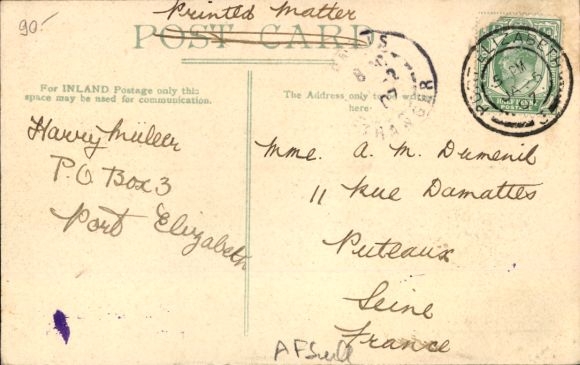 90.-
Printed Matter
POST CARD
For INLAND Postage only this
space may be used for communication.
The Address only to be written
here.
Harry Müller
P.O Box 3
Port Elizabeth
Mme. A. M. Dumenil
11 Rue Damattes
Puteaux
Seine
France
PORT ELIZABETH
HALF PENNY
POSTAGE
ETRANGER